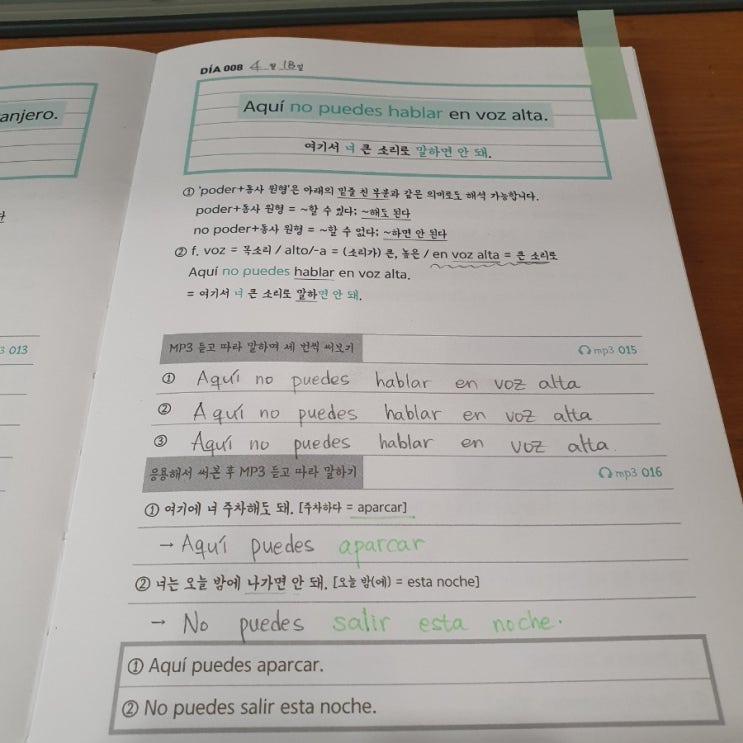 anjero.
DÍA 008 4 월 18 일
Aquí no puedes hablar en voz alta.
여기서 너 큰 소리로 말하면 안 돼.
① 'poder+동사 원형'은 아래의 밑줄 친 부분과 같은 의미로도 해석 가능합니다.
poder+동사 원형 = ~할 수 있다; ~해도 된다
no poder+동사 원형 = ~할 수 없다; ~하면 안 된다
② f. voz = 목소리 / alto/-a = (소리가) 큰, 높은 / en voz alta = 큰 소리로
Aquí no puedes hablar en voz alta.
= 여기서 너 큰 소리로 말하면 안 돼.
3 013
MP3 듣고 따라 말하며 세 번씩 써보기 mp3 015
① Aquí no puedes hablar en voz alta
② Aquí no puedes hablar en voz alta
③ Aquí no puedes hablar en voz alta.
응용해서 써본 후 MP3 듣고 따라 말하기 mp3 016
① 여기에 너 주차해도 돼. [주차하다 = aparcar]
→ Aquí puedes aparcar
② 너는 오늘 밤에 나가면 안 돼. [오늘 밤(에) = esta noche]
→ No puedes salir esta noche.
① Aquí puedes aparcar.
② No puedes salir esta noche.